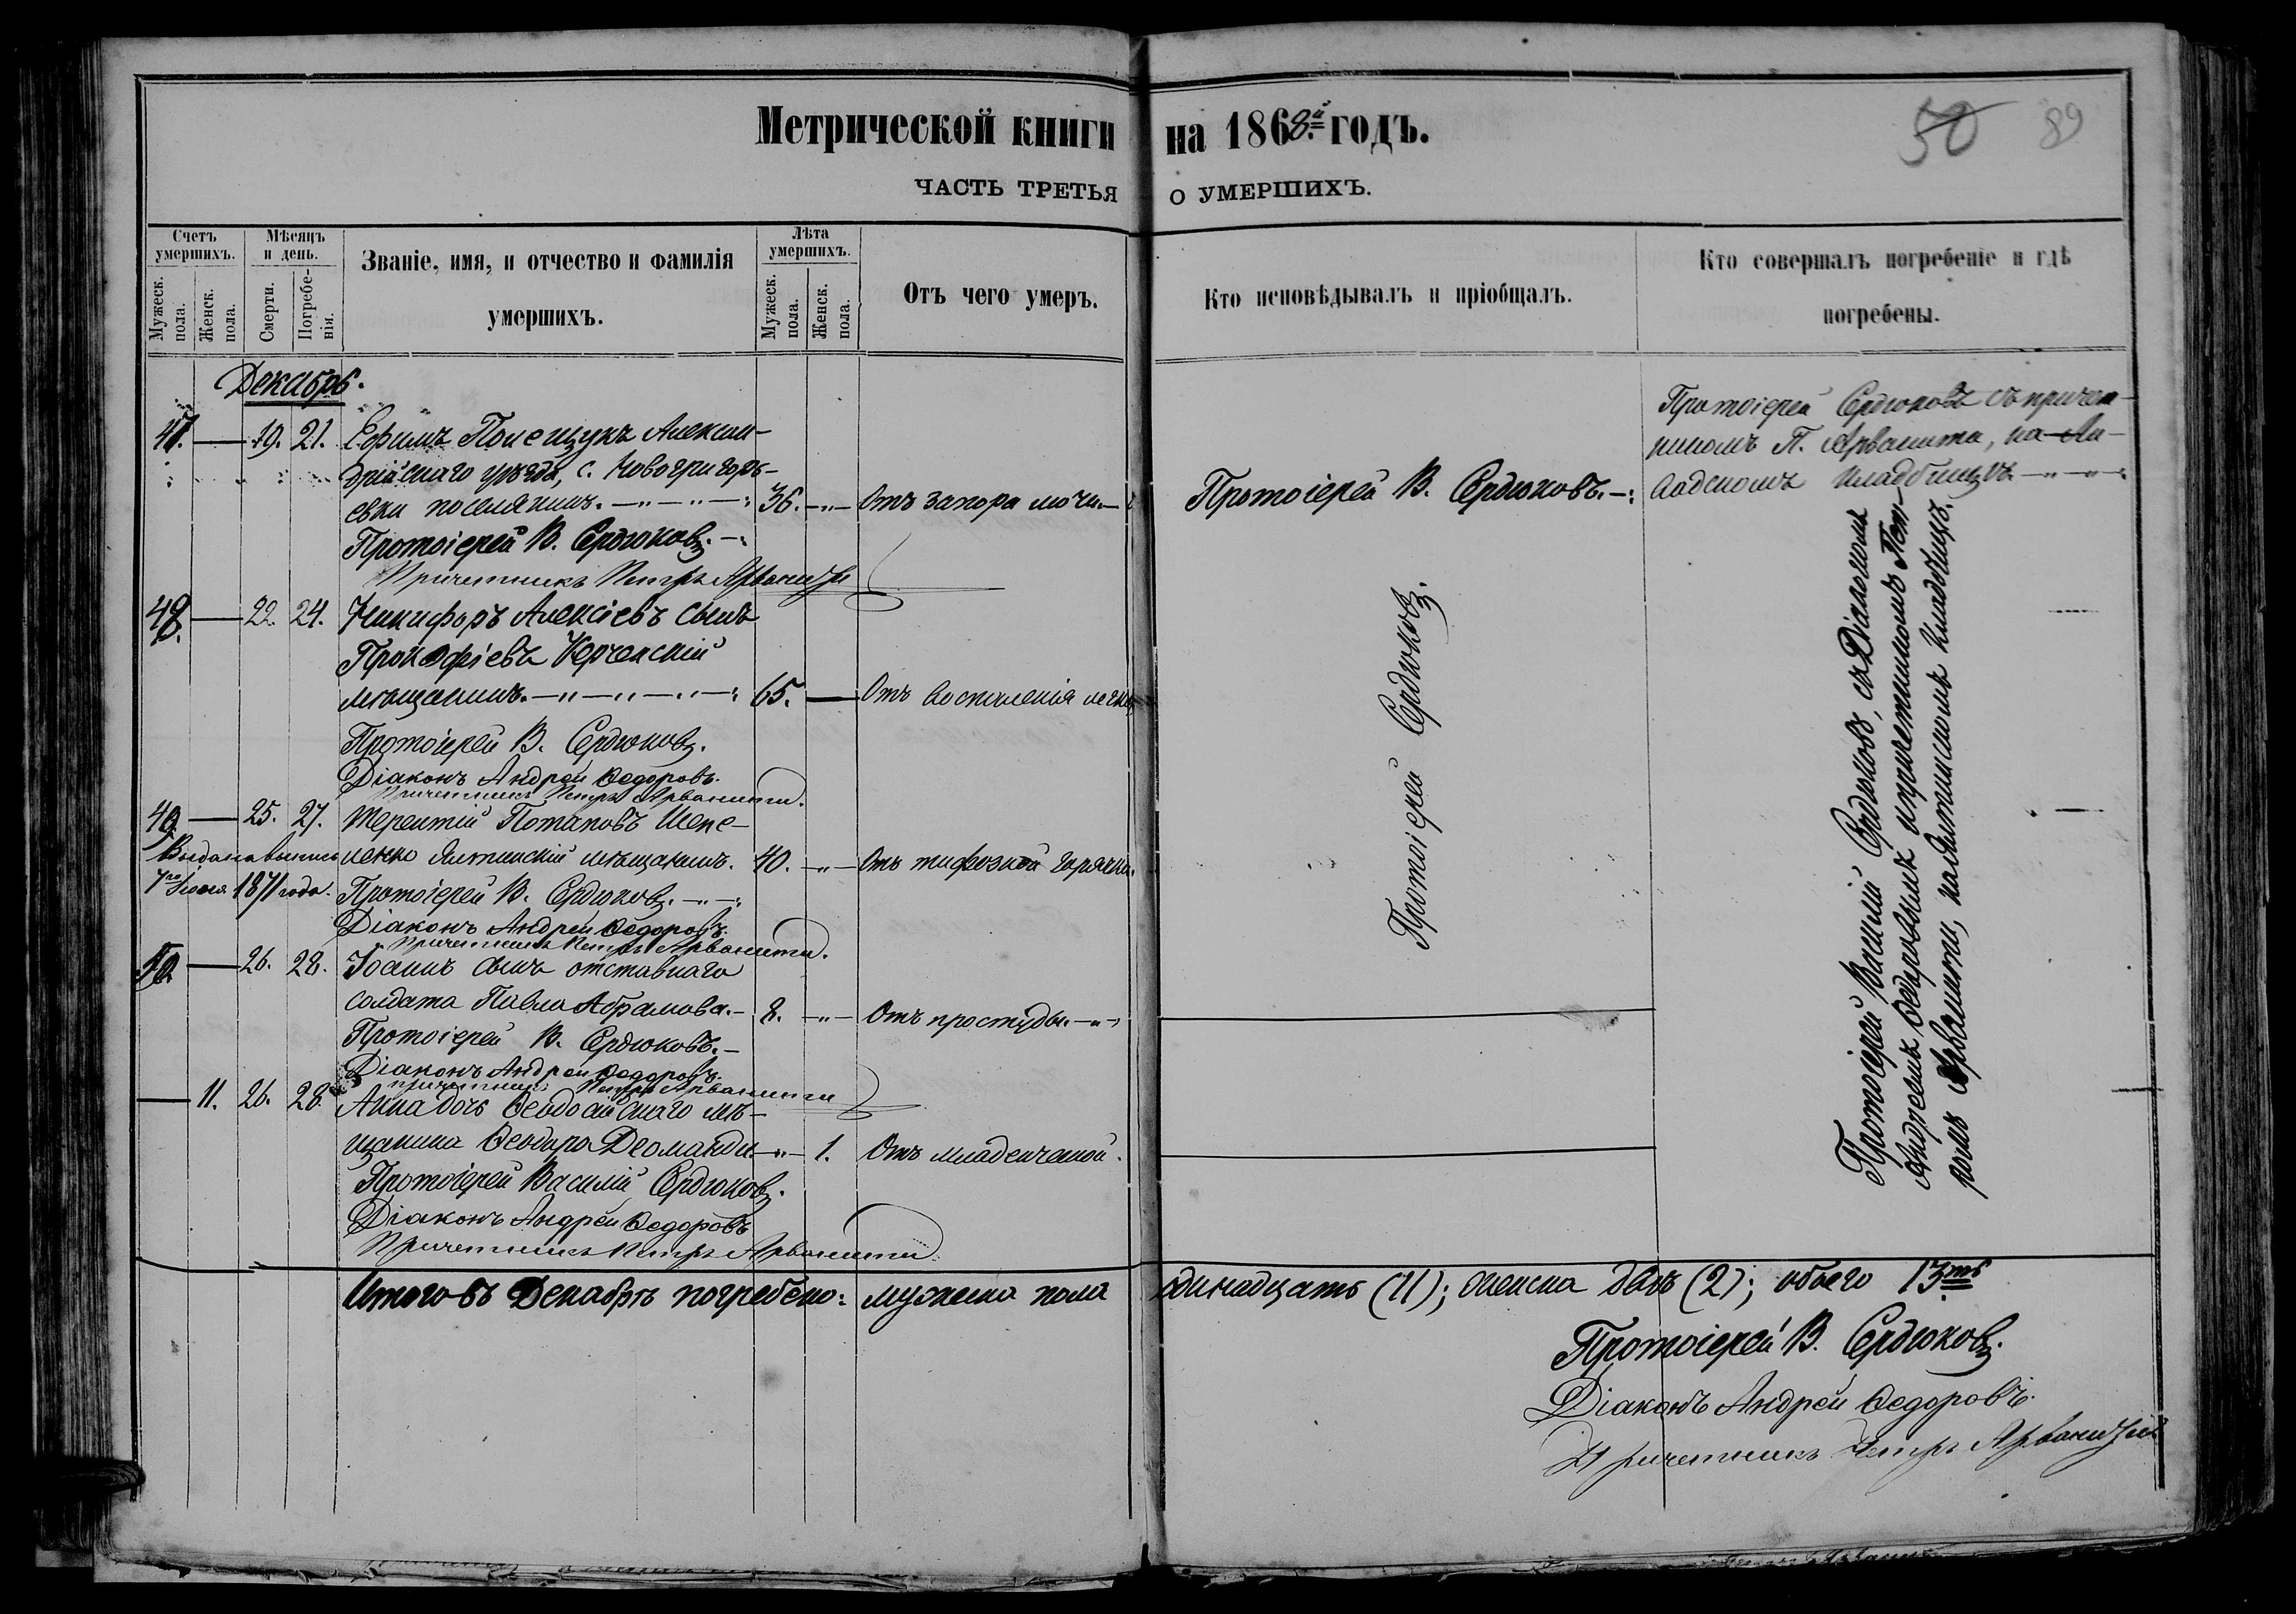 Метрической книги на 1868.й годъ.
50 89
ЧАСТЬ ТРЕТЬЯ О УМЕРШИХЪ.
Счетъ умершихъ.
Мужеск. пола.
Женск. пола.
Мѣсяцъ и день.
Смерти.
Погребенія.
Званіе, имя, и отчество и фамилія
умершихъ.
Лѣта умершихъ.
Мужеск. пола.
Женск. пола.
Отъ чего умеръ.
Кто исповѣдывалъ и пріобщалъ.
Кто совершалъ погребеніе и гдѣ
погребены.
Декабрь.
47. — 19. 21. Ефимъ Полещукъ Алексан-
дрійскаго уѣзда, с. Новогригорь-
евки поселянинъ. 36. Отъ запора мочи.
Протоіерей В. Сердюковъ.
Протоіерей Сердюковъ съ причет-
никомъ П. Арванити, на Ли-
вадскомъ кладбищѣ
Протоіерей В. Сердюковъ.
Причетникъ Петръ Арванити
48. — 22. 24. Никифоръ Алексіевъ сынъ
Прокофіевъ Керченскій
мѣщанинъ. 65. — Отъ воспаленія легких
Протоіерей В. Сердюковъ.
Діаконъ Андрей Ѳедоровъ.
Причетникъ Петръ Арванити.
49. — 25. 27. Терентій Потаповъ Шепе-
ленко Ялтинскій мѣщанинъ. 40. Отъ тифозной горячки.
Выдана выпись
7го Іюня 1871 года.
Протоіерей В. Сердюковъ.
Діаконъ Андрей Ѳедоровъ.
Причетникъ Петръ Арванити.
50. — 26. 28. Іоаннъ сынъ отставнаго
солдата Павла Абрамова. 8. Отъ простуды.
Протоіерей В. Сердюковъ.
Діаконъ Андрей Ѳедоровъ.
Причетникъ Петръ Арванити
— 11. 26. 28. Анна дочь Ѳеодосійскаго мѣ-
щанина Ѳеодора Деоманди 1. Отъ младенческой.
Протоіерей Василій Сердюковъ.
Діаконъ Андрей Ѳедоровъ
Причетникъ Петръ Арванити
Протоіерей Сердюковъ.
Протоіерей Василій Сердюковъ, съ Діакономъ
Андреемъ Ѳедоровымъ и причетникомъ Пет-
ромъ Арванити, на Ялтинскомъ кладбищѣ.
Итого въ Декабрѣ погребено: мужеска пола одинадцать (11); женска двѣ (2); обоего 13ть
Протоіерей В. Сердюковъ.
Діаконъ Андрей Ѳедоровъ.
Причетникъ Петръ Арванити